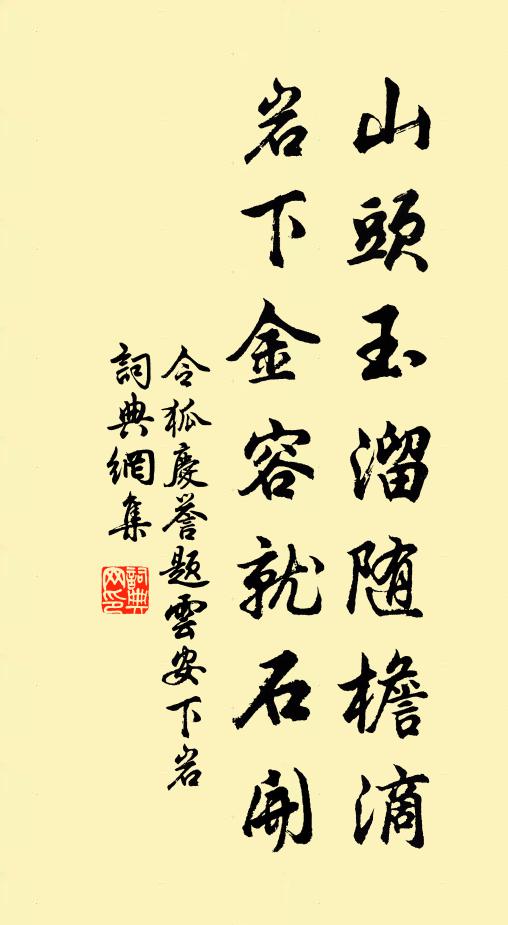 山頭玉溜随檐滴
岩下金容就石開
令狐慶譽题雲安下岩
詞典網集
詞典網印